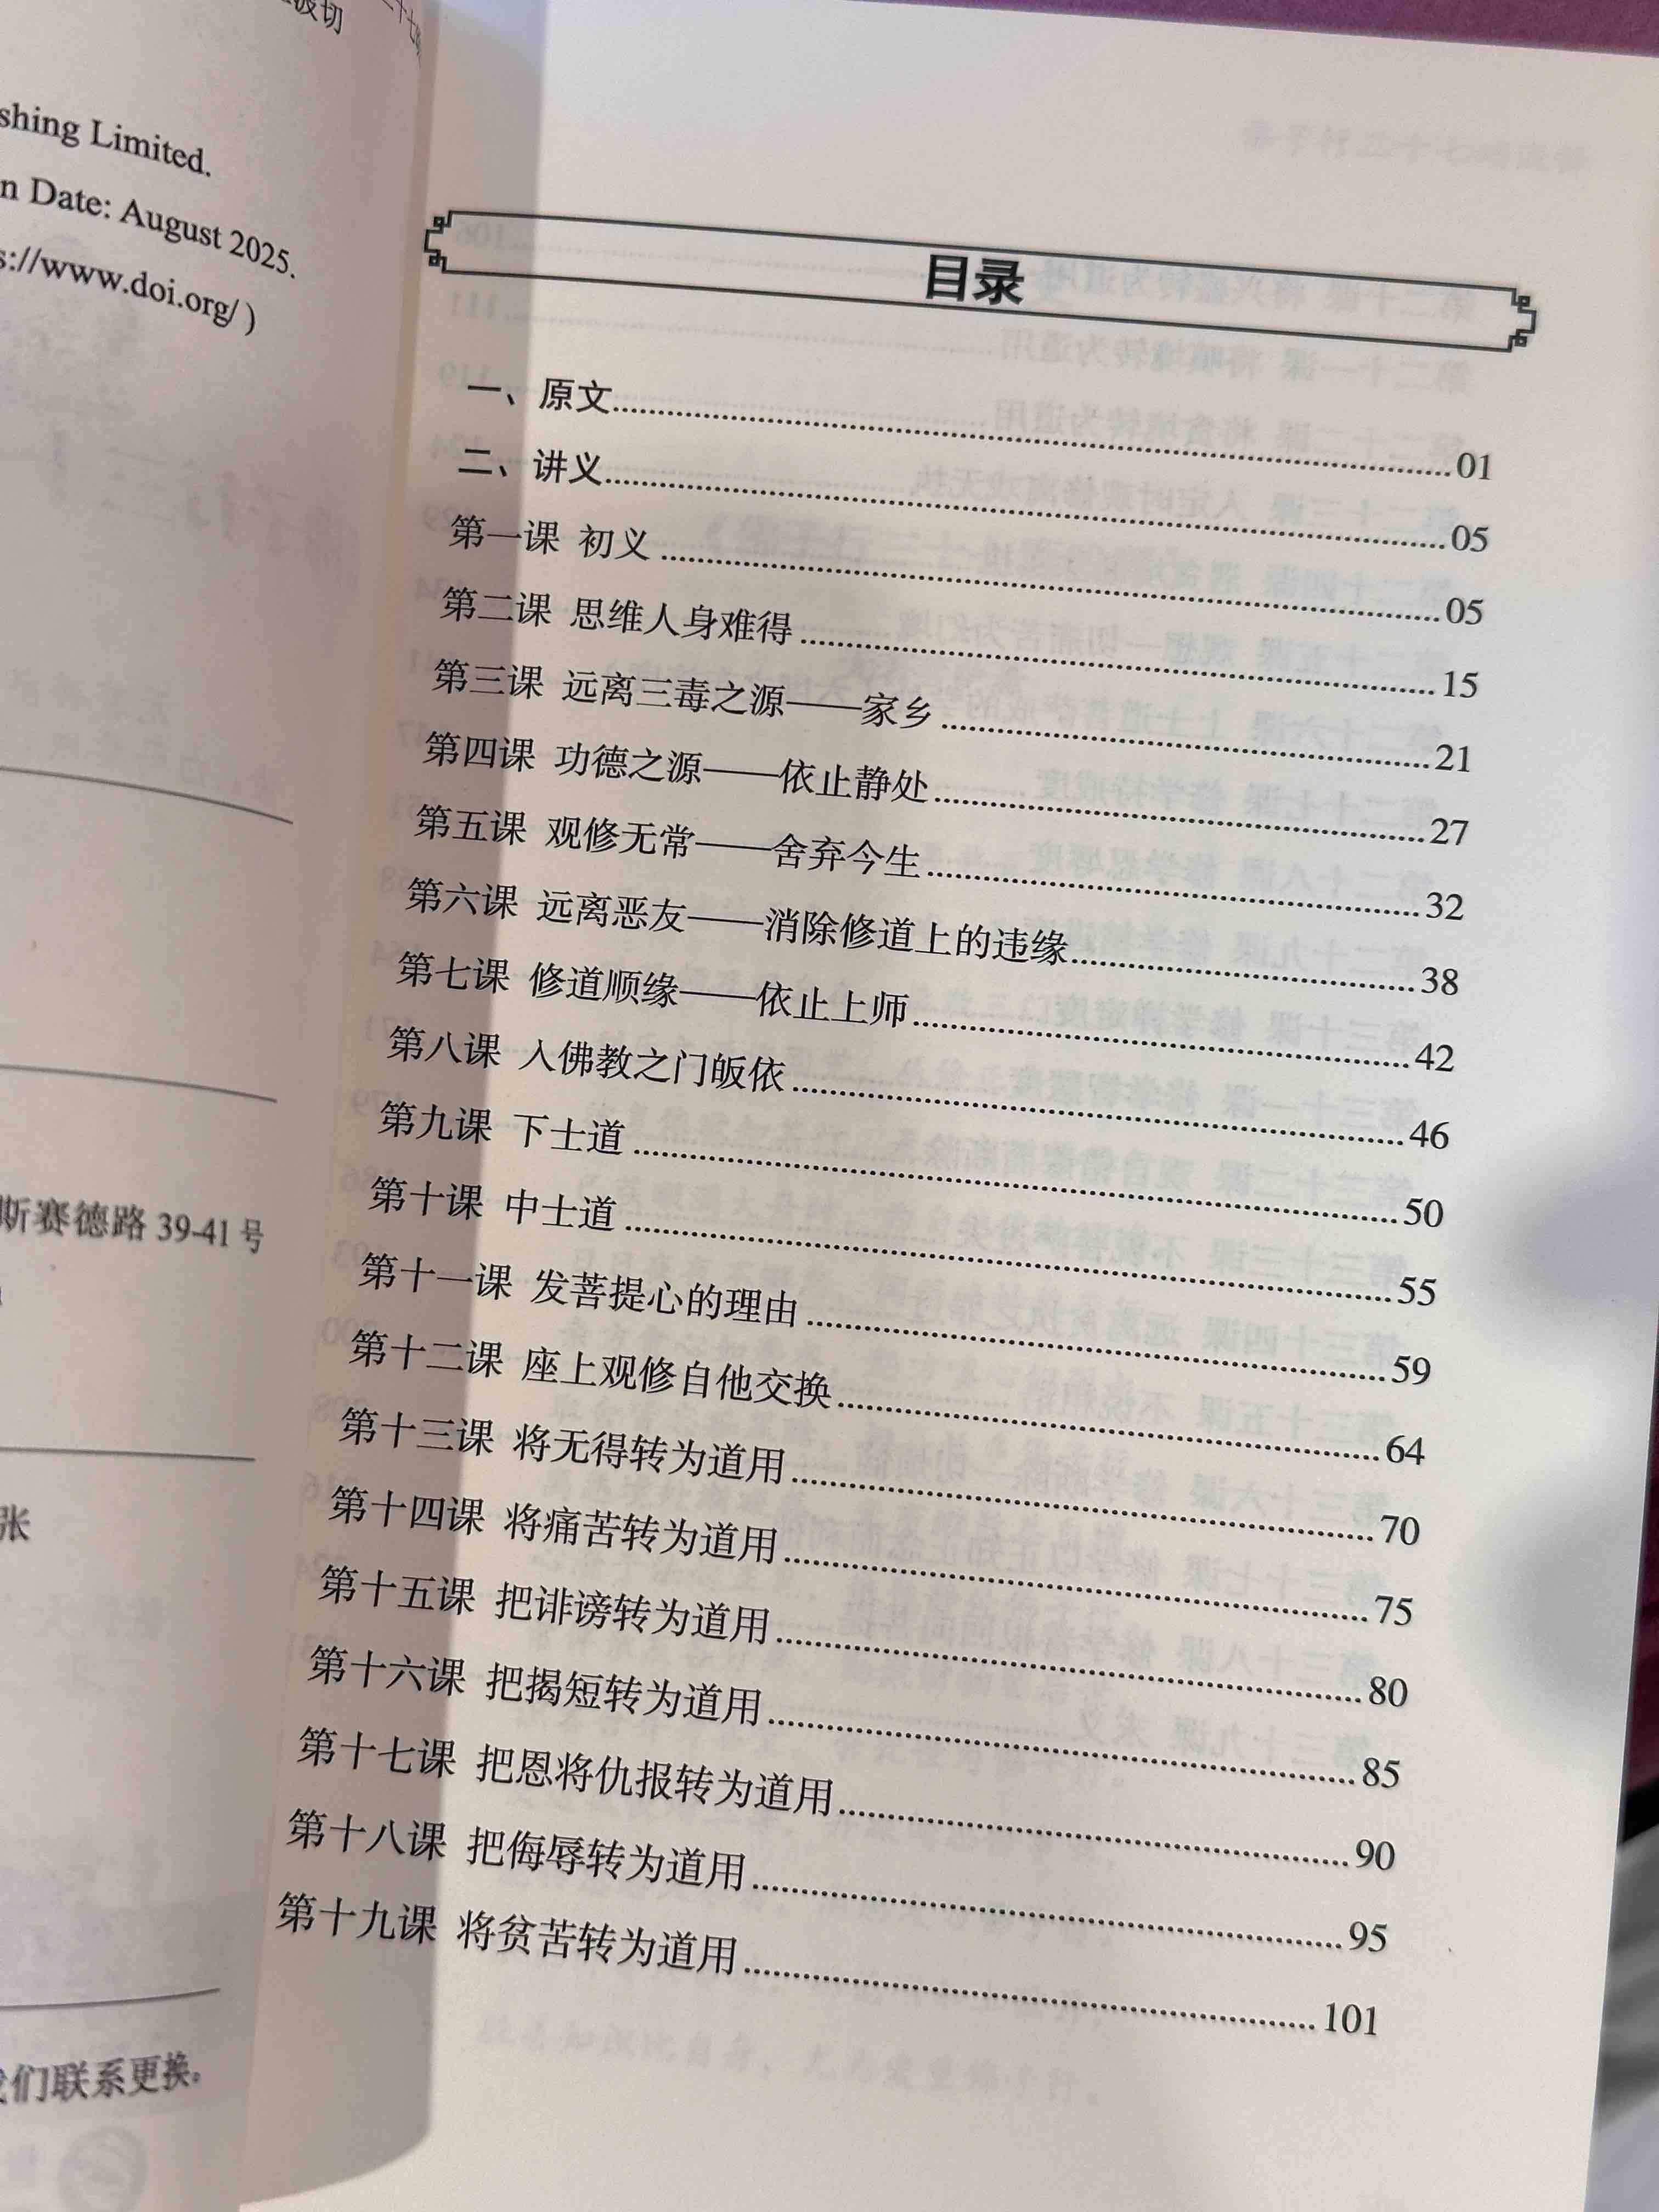 shing Limited.
n Date: August 2025.
s://www.doi.org/ )
斯赛德路 39-41 号
张
们联系更换。
目录
一、原文....................01
二、讲义....................05
第一课 初义....................05
第二课 思维人身难得....................15
第三课 远离三毒之源——家乡....................21
第四课 功德之源——依止静处....................27
第五课 观修无常——舍弃今生....................32
第六课 远离恶友——消除修道上的违缘....................38
第七课 修道顺缘——依止上师....................42
第八课 入佛教之门皈依....................46
第九课 下士道....................50
第十课 中士道....................55
第十一课 发菩提心的理由....................59
第十二课 座上观修自他交换....................64
第十三课 将无得转为道用....................70
第十四课 将痛苦转为道用....................75
第十五课 把诽谤转为道用....................80
第十六课 把揭短转为道用....................85
第十七课 把恩将仇报转为道用....................90
第十八课 把侮辱转为道用....................95
第十九课 将贫苦转为道用....................101